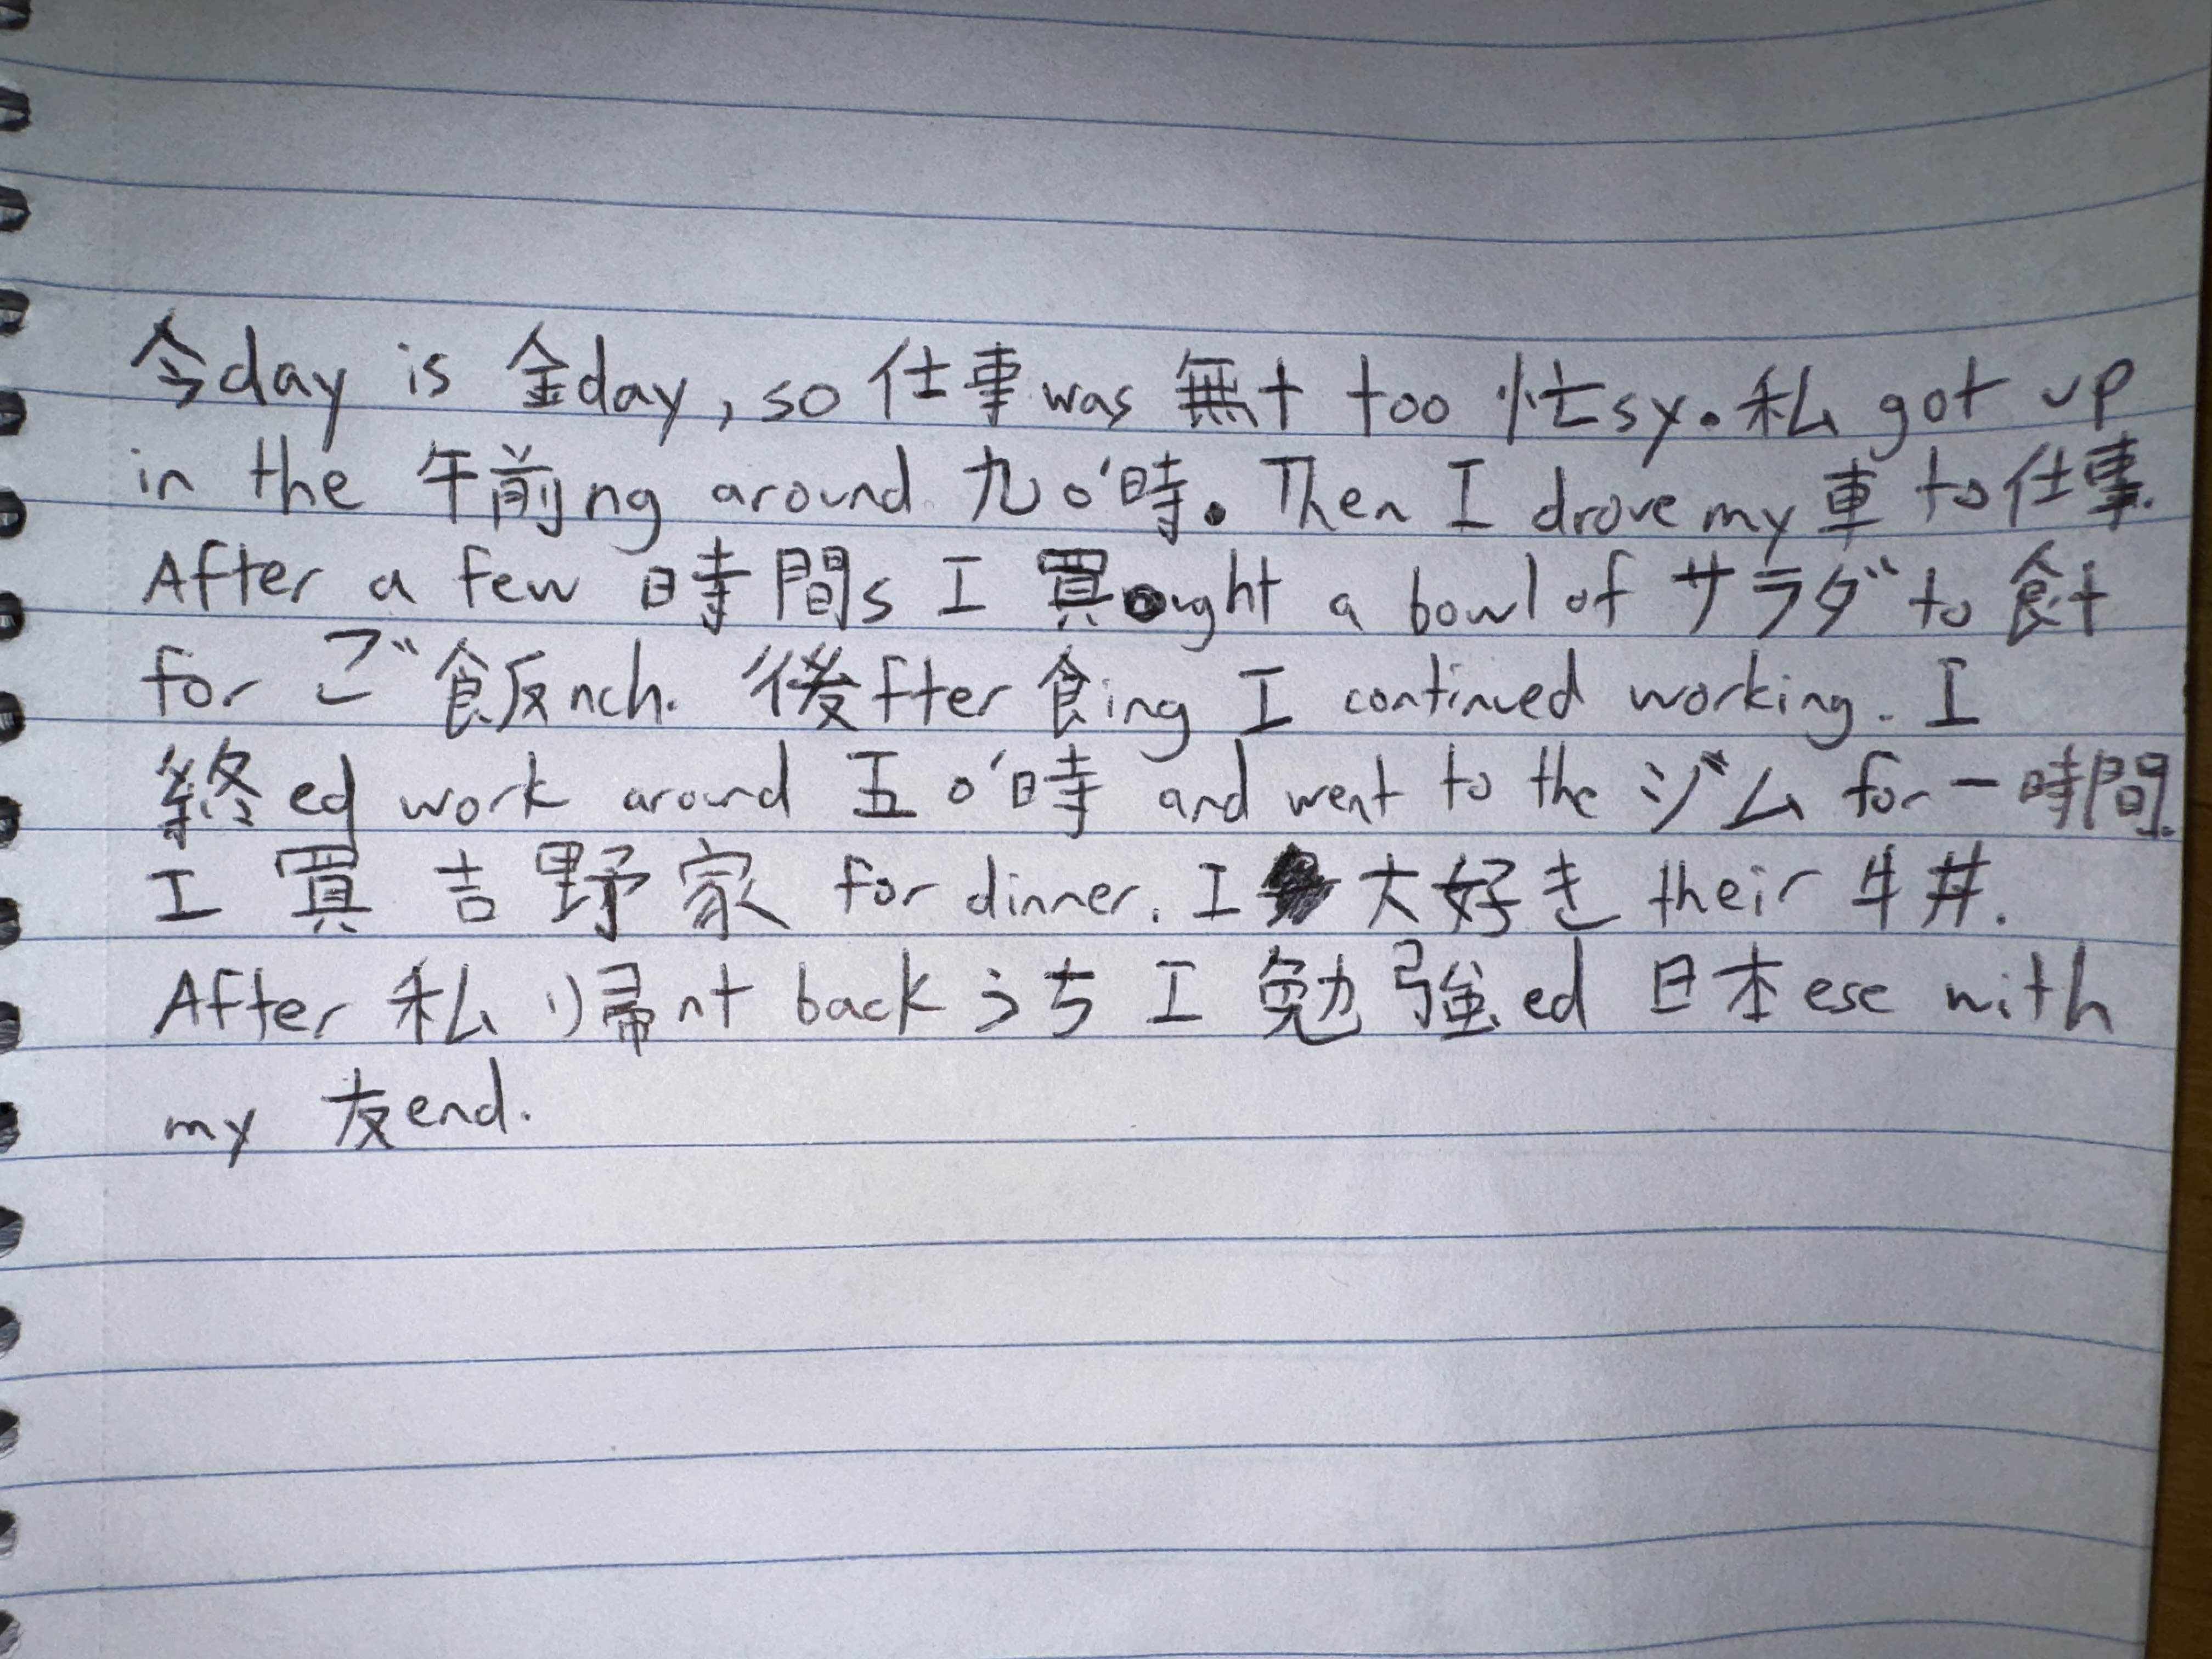 今day is 金day, so 仕事 was 無t too 忙sy. 私 got up
in the 午前ng around 九o'時. Then I drove my 車 to 仕事.
After a few 時間s I 買ought a bowl of サラダ to 食t
for ご飯nch. 後fter 食ing I continued working. I
終ed work around 五o'時 and went to the ジム for 一時間.
I 買 吉野家 for dinner. I 大好き their 牛丼.
After 私 帰nt back うち I 勉強ed 日本ese with
my 友end.